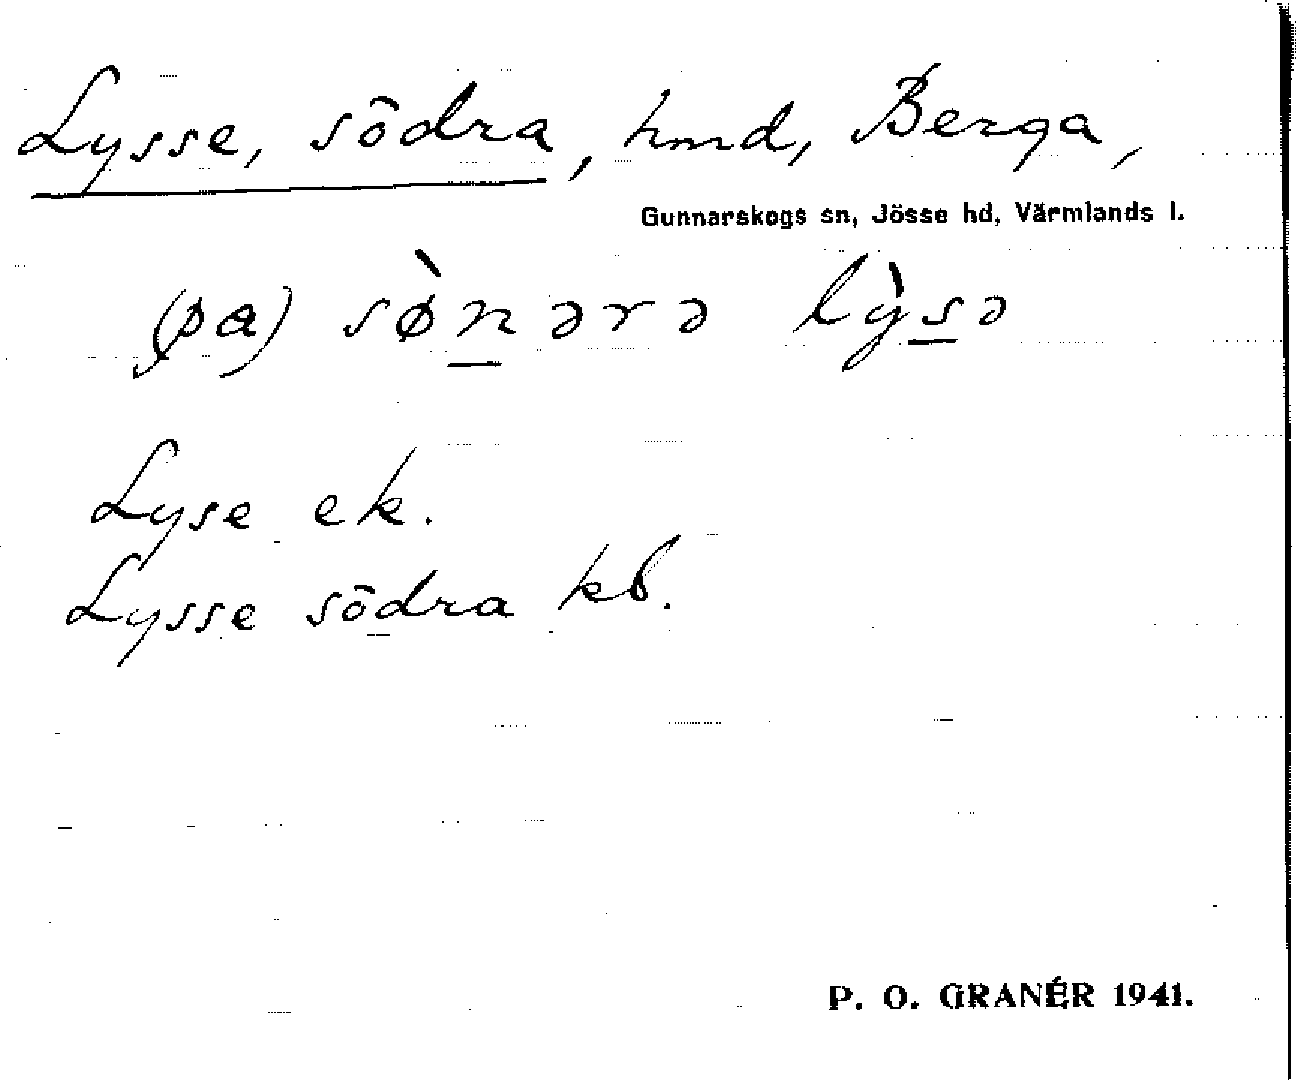 Lysse, södra, hmd, Berga,
Gunnarskogs sn, Jösse hd, Värmlands l.
(pa) sø̀n̲ərə lỳs̲ə
Lyse ek.
Lysse södra kb.
P. O. GRANÉR 1941.